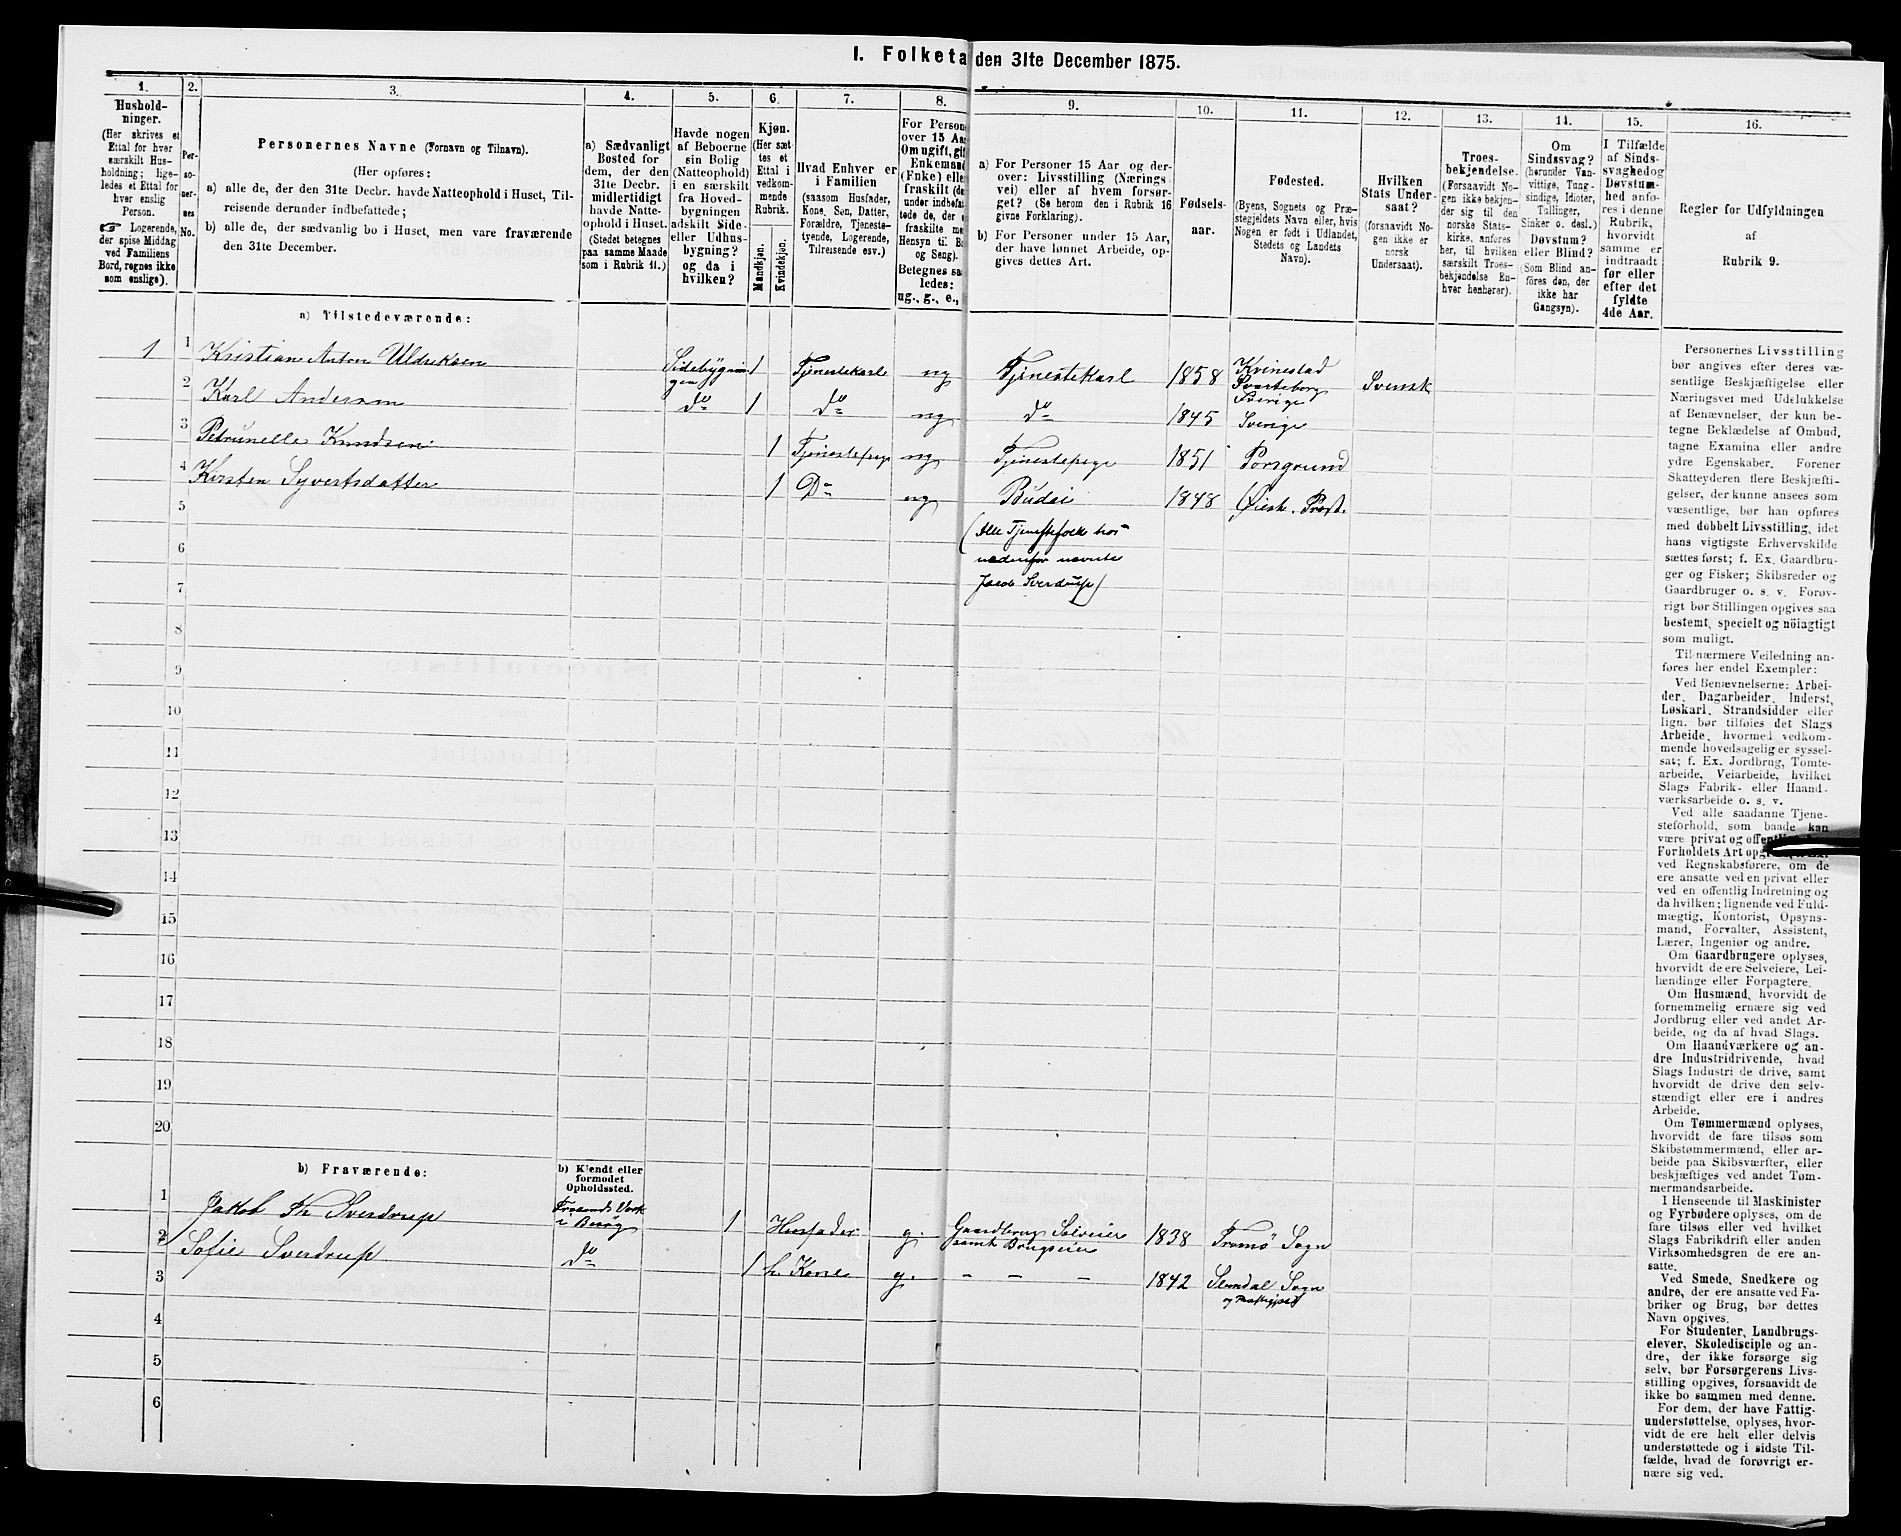 I. Folketa den 31te December 1875.
1. 2. 3. 4. 5. 6. 7. 8. 9. 10. 11. 12. 13. 14. 15. 16.
Hushold-
ninger.
(Her skrives et
Ettal for hver
særskilt Hus-
holdning; lige-
ledes et Ettal for
hver enslig
Person.
☞ Logerende,
der spise Middag
ved Familiens
Bord, regnes ikke
som enslige).
Per-
so-
ner-
nes
No.
Personernes Navne (Fornavn og Tilnavn).
(Her opføres:
a) alle de, der den 31te Decbr. havde Natteophold i Huset, Til-
reisende derunder indbefattede;
b) alle de, der sædvanlig bo i Huset, men vare fraværende
den 31te December.
a) Sædvanligt
Bosted for
dem, der den
31te Decbr.
midlertidigt
havde Natte-
ophold i Huset.
(Stedet betegnes
paa samme Maade
som i Rubrik 11.)
Havde nogen
af Beboerne
sin Bolig
(Natteophold)
i en særskilt
fra Hoved-
bygningen
adskilt Side-
eller Udhus-
bygning?
og da i
hvilken?
Kjøn.
(Her sæt-
tes et
Ettal i
vedkom-
mende
Rubrik.
Mandkjøn.
Kvindekjøn.
Hvad Enhver er
i Familien
(saasom Husfader,
Kone, Søn, Datter,
Forældre, Tjeneste-
tyende, Logerende,
Tilreisende osv.)
For Persone
over 15 Aa
Om ugift, gif
Enkemand
(Enke) elle
fraskilt (de
under indbefat-
tede de, der e
fraskilte me
Hensyn til Bo
og Seng).
Betegnes saa
ledes:
ug., g., e.,
a) For Personer 15 Aar og der-
over: Livsstilling (Nærings-
vei) eller af hvem forsør-
get? (Se herom den i Rubrik 16
givne Forklaring).
b) For Personer under 15 Aar,
der have lønnet Arbeide, op-
gives dettes Art.
Fødsels-
aar.
Fødested.
(Byens, Sognets og Præ-
stegjeldets Navn eller, hvis
Nogen er født i Udlandet,
Stedets og Landets
Navn).
Hvilken
Stats Under-
saat?
(forsaavidt No-
gen ikke er
norsk
Undersaat).
Troes-
bekjendelse.
(Forsaavidt No-
gen ikke bekjen-
der sig til den
norske Stats-
kirke, anføres
her, til hvilken
særskilt Troes-
bekjendelse En-
hver henhører).
Om
Sindssvag?
(herunder Van-
vittige, Tung-
sindige, Idioter,
Tullinger,
Sinker o. desl.)
Døvstum?
eller Blind?
(Som Blind an-
føres den, der
ikke har
Gangsyn).
I Tilfælde
af Sinds-
svaghed og
Døvstum-
hed anfø-
res i denne
Rubrik,
hvorvidt
samme er
indtraadt
før eller
efter det
fyldte
4de Aar.
Regler for Udfyldningen
af
Rubrik 9.
a) Tilstedeværende:
1 1 Kristian Anton Uldriksen Sidebygnin- 1 Tjenestekarl ug Tjenestekarl 1858 Kvinestad Svensk
gen Svarteborg
Sverige
2 Karl Anderson do 1 do ug do 1845 Sverige
3 Petrunelle Knudsen 1 Tjenestepige ug Tjenestepige 1851 Porsgrund
4 Kirsten Syvertsdatter 1 Do ug Budei 1848 Øiest. Præst.
5 (Alle Tjenestefolk hos
6 nedenfor nævnte
7 Jacob Sverdrup)
8
9
10
11
12
13
14
15
16
17
18
19
20
b) Fraværende:
b) Kjendt eller
formodet
Opholdssted.
1 Jakob Kr Sverdrup Frolands Verk 1 Husfader g. Gaardbrug Selveier 1838 Tromø Sogn
i Besøg samt Brugseier
2 Sofie Sverdrup do 1 h. Kone g. - - - 1842 Lerdal Sogn
og Præstegjeld
3
4
5
6
Personernes Livsstilling
bør angives efter deres væ-
sentlige Beskjæftigelse eller
Næringsvei med Udelukkelse
af Benævnelser, der kun be-
tegne Beklædelse af Ombud,
tagne Examina eller andre
ydre Egenskaber. Forener
Skatteyderen flere Beskjæfti-
gelser, der kunne ansees som
væsentlige, bør han opføres
med dobbelt Livsstilling, idet
hans vigtigste Erhvervskilde
sættes først; f. Ex. Gaardbru-
ger og Fisker; Skibsreder og
Gaardbruger o. s. v. Forøv-
rigt bør Stillingen opgives saa
bestemt, specielt og nöiagtigt
som muligt.
Til nærmere Veiledning an-
føres her endel Exempler:
Ved Benævnelserne: Arbei-
der, Dagarbeider, Inderst,
Løskarl, Strandsidder eller
lign. bør tilføies det Slags
Arbeide, hvormed vedkom-
mende hovedsagelig er syssel-
sat; f. Ex. Jordbrug, Tomte-
arbeide, Veiarbeide, hvilket
Slags Fabrik- eller Haand-
værksarbeide o. s. v.
Ved alle saadanne Tjene-
steforhold, som baade kan
være privat og
Forholdets Art
ved Regnskabsførere, om de
ere ansatte ved en privat eller
ved en offentlig Indretning og
da hvilken; lignende ved Fuld-
mægtig, Kontorist, Opsyns-
mand, Forvalter, Assistent,
Lærer, Ingeniør og andre.
Om Gaardbrugere oplyses,
hvorvidt de ere Selveiere, Lei-
lændinge eller Forpagtere.
Om Husmænd, hvorvidt de
fornemmelig ernære sig ved
Jordbrug eller ved andet Ar-
beide, og da af hvad Slags.
Om Haandværkere og an-
dre Industridrivende, hvad
Slags Industri de drive, samt
hvorvidt de drive den selv-
stændigt eller ere i andres
Arbeide.
Om Tømmermænd oplyses,
hvorvidt de fare tilsøs som
Skibstømmermænd, eller ar-
beide paa Skibsværfter, eller
beskjæftiges ved andet Tøm-
mermandsarbeide.
I Henseende til Maskinister
og Fyrbødere oplyses, om de
fare tilsøs eller ved hvilket
Slags Fabrikdrift eller anden
Virksomhedsgren de ere an-
satte.
Ved Smede, Snedkere og
andre, der ere ansatte ved Fa-
briker og Brug, bør dettes
Navn opgives.
For Studenter, Landbrugs-
elever, Skoledisciple og an-
dre, der ikke forsørge sig
selv, bør Forsørgerens Livs-
stilling opgives, forsaavidt de
ikke bo sammen med denne.
For dem, der have Fattig-
understøttelse, oplyses, hvor-
vidt de ere helt eller delvis
understøttede og i sidste Til-
fælde, hvad de forøvrigt er-
nære sig ved.